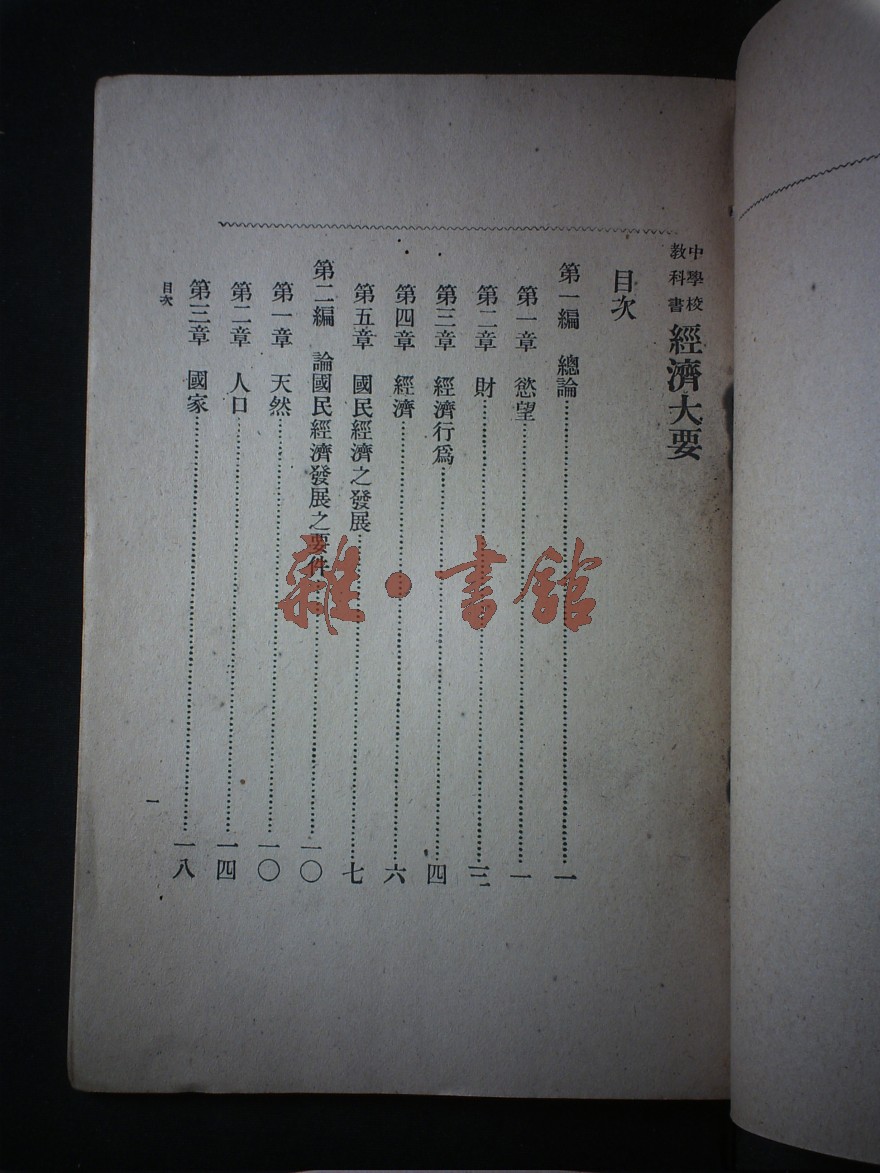 中學校
教科書
經濟大要
目次
第一編 總論……一
第一章 慾望……一
第二章 財……三
第三章 經濟行爲……四
第四章 經濟……六
第五章 國民經濟之發展……七
第二編 論國民經濟發展之要件……一〇
第一章 天然……一〇
第二章 人口……一四
第三章 國家……一八
目次
一
雜·書館